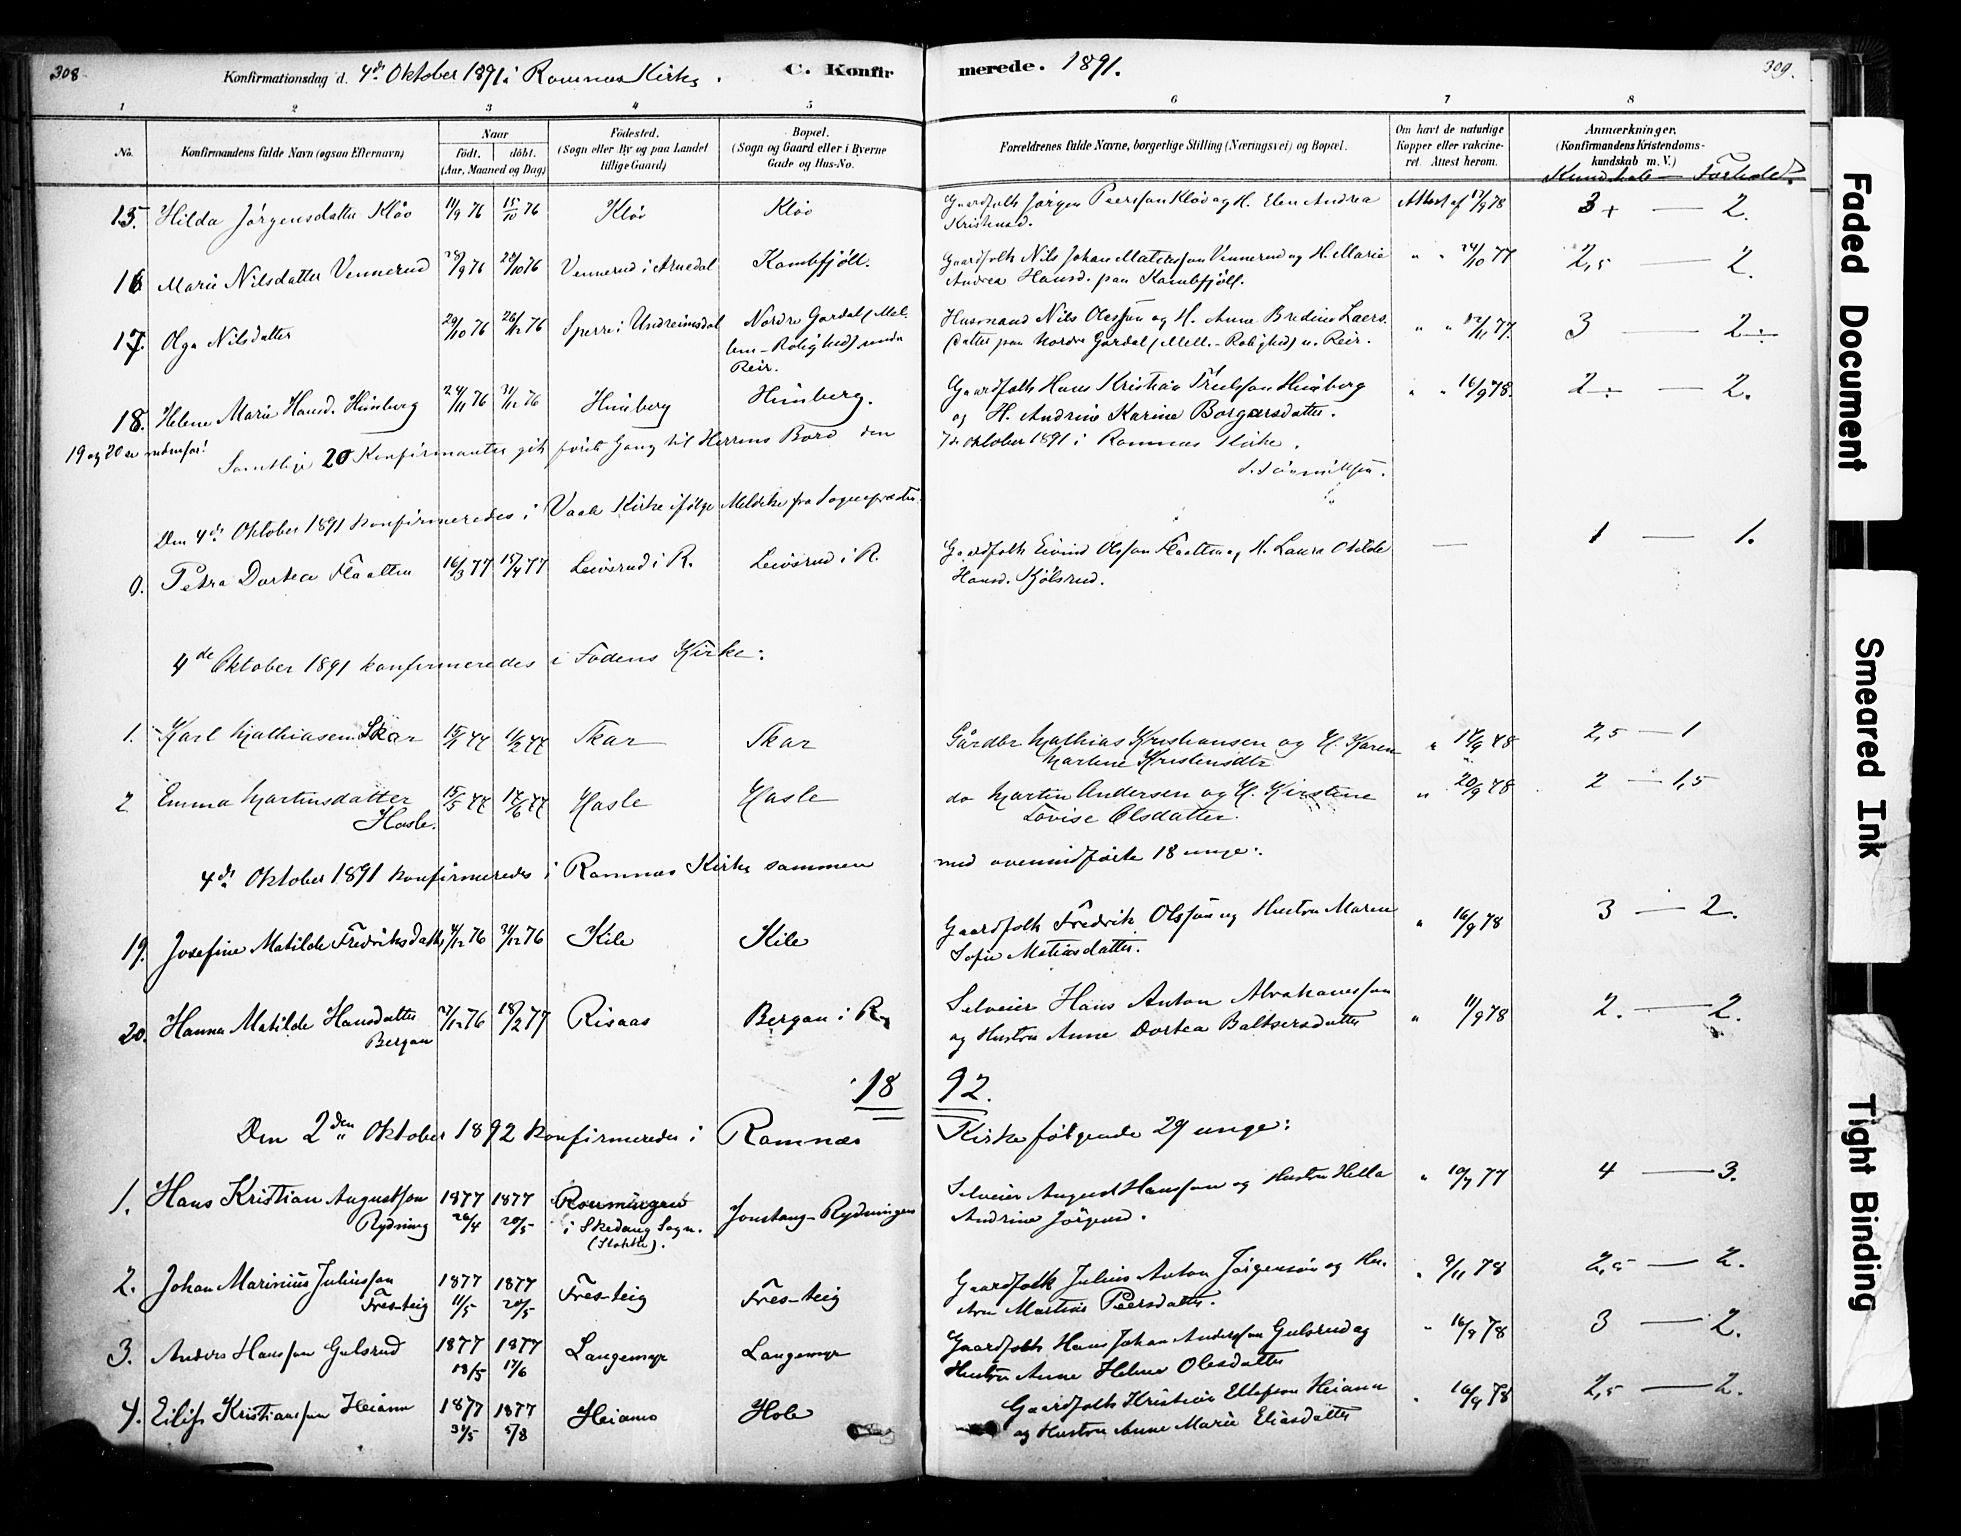 308
Konfirmationsdag d. 4de Oktober 1891 i Ramnæs Kirke.
C. Konfirmerede. 1891.
309.
1 2 3 4 5 6 7 8
No.
Konfirmandens fulde Navn (ogsaa Efternavn)
Naar
født. døbt.
(Aar, Maaned og Dag)
Fødested.
(Sogn eller By og paa Landet
tillige Gaard)
Bopæl.
(Sogn og Gaard eller i Byerne
Gade og Hus-No.
Forældrenes fulde Navne, borgerlige Stilling (Næringsvei) og Bopæl.
Om havt de naturlige
Kopper eller vakcine-
ret. Attest herom.
Anmærkninger.
(Konfirmandens Kristendoms-
kundskab m. V.)
Kundskab — Forhold.
15. Hilda Jørgensdatter Kløv 11/9 76 15/10 76 Kløv Kløv Gaardfolk Jørgen Peersson Kløv og H. Elen Andrea Attest af 17/9 78 3+ — 2.
Kristensd.
16 Marie Nilsdatter Vennerud 28/9 76 29/10 76 Vennerud i Arnedal Kambfjöll. Gaardfolk Nils Johan Matersson Vennerud og H. Marie " " 24/10 77 2,5 — 2.
Andrea Hansd. paa Kambfjöll.
17. Olga Nilsdatter 29/10 76 26/12 76 Sperre i Undreimsdal Nordre Gardal (Mel- Husmand Nils Olesson og H. Anne Bredine Laers- " " 12/11 77. 3 — 2÷
lem-Rolighed) under datter paa Nordre Gardal (Mell.-Rolighed) u. Reir.
Reir.
18. Helene Marie Hansd. Himberg 24/11 76 31/12 76 Himberg Himberg. Gaardfolk Hans Kristian Truelsson Himberg " " 16/9 78. 2÷ — 2.
og H. Andrine Karine Borgersdatter.
19 og 20 se nedenfor! Samtlige 20 Konfirmanter gik første Gang til Herrens Bord den 7de Oktober 1891 i Ramnæs Kirke.
Den 4de Oktober 1891 konfirmeredes i Vaale Kirke ifølge Meldelse fra Sognepræsten:
0. Petra Dortea Flaatten 16/3 77 15/4 77 Leivsrud i R. Leivsrud i R. Gaardfolk Eivind Olsson Flaatten og H. Laura Otilde — 1 — 1.
Hansd. Kjølsrud.
4de Oktober 1891 konfirmeredes i Fodens Kirke:
1. Karl Mathiasen Skar 15/1 77 11/2 77 Skar Skar Gårdbr Mathias Kristiansen og H. Karen " 17/9 78 2,5 — 1
Martine Kristensdtr
2 Emma Martinsdatter 15/5 77 17/6 77 Hasle Hasle do Martin Andersen og H. Kirstine " 20/9 78 2 — 1,5
Hasle. Lovise Olsdatter.
4de Oktober 1891 konfirmeredes i Ramnæs Kirke sammen med ovenindførte 18 unge:
19. Josefine Matilde Fredriksdatter 4/12 76 31/12 76 Kile Kile Gaardfolk Fredrik Olsson og Hustru Maren " 16/9 78 3 — 2.
Sofie Matiasdatter.
20. Hanna Matilde Hansdatter 27/12 76 18/2 77 Risaas Bergan i R. Selveier Hans Anton Abrahamsson " 11/9 78 2. — 2.
Bergan og Hustru Anne Dortea Baltsersdatter
1892.
Den 2den Oktober 1892 konfirmeredes i Ramnæs Kirke følgende 29 unge:
1. Hans Kristian Augustson 1877 1877 Rønningen Jonstang-Rydningen Selveier August Hansson og Hustru Hella " 10/7 77 4 — 3.
Rydning 26/4 20/5 i Skedang Sogn. Andrine Jørgensd.
(Slokke).
2. Johan Marinius Juliusson 1877 1877 Fres-teig Fres-teig Gaardfolk Julius Anton Jørgensøn og Hu- " 9/11 78 2,5 — 2.
Fres-teig 11/5 20/5 stru Martine Peersdatter.
3. Anders Hansson Gulsrud 1877 1877 Langemyr Langemyr Gaardfolk Hans Johan Andersson Gulsrud og " 16/9 78 3 — 2.
13/5 17/6 Hustru Anne Helene Olesdatter
4. Eilif Kristiansson Heiann 1877 1877 Heiamo Hole Gaardfolk Kristian Ellefson Heiann " 16/9 78 2,5 — 2.
31/5 5/8 og Hustru Anne Marie Eliasdatter
Faded Document
Smeared Ink
Tight Binding